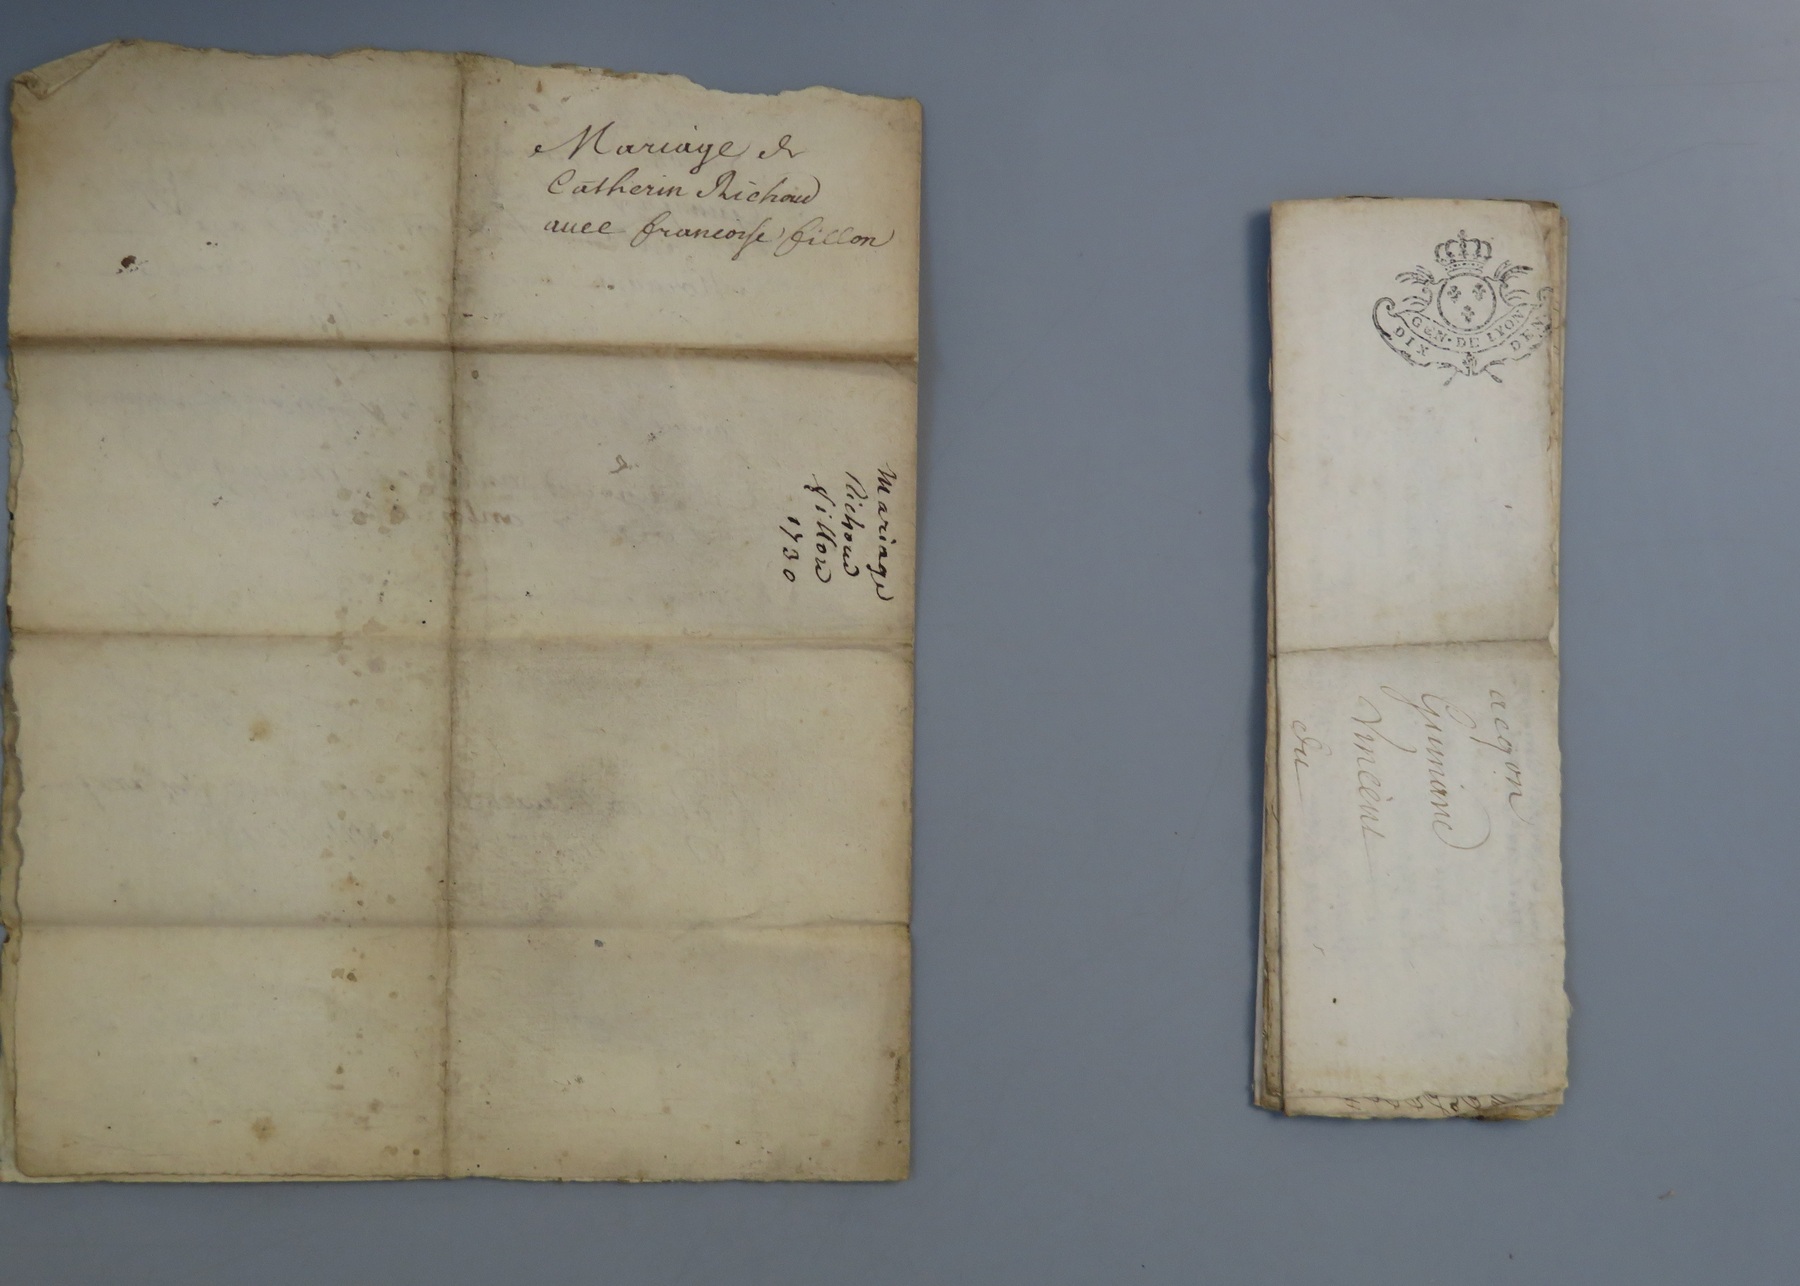 Mariage de
Catherin Richoud
auec francoise fillon
Mariage
Richoud
fillon
1730
GEN · DE LYON
DIX DEN
acqon
Guinand
Vincent
du